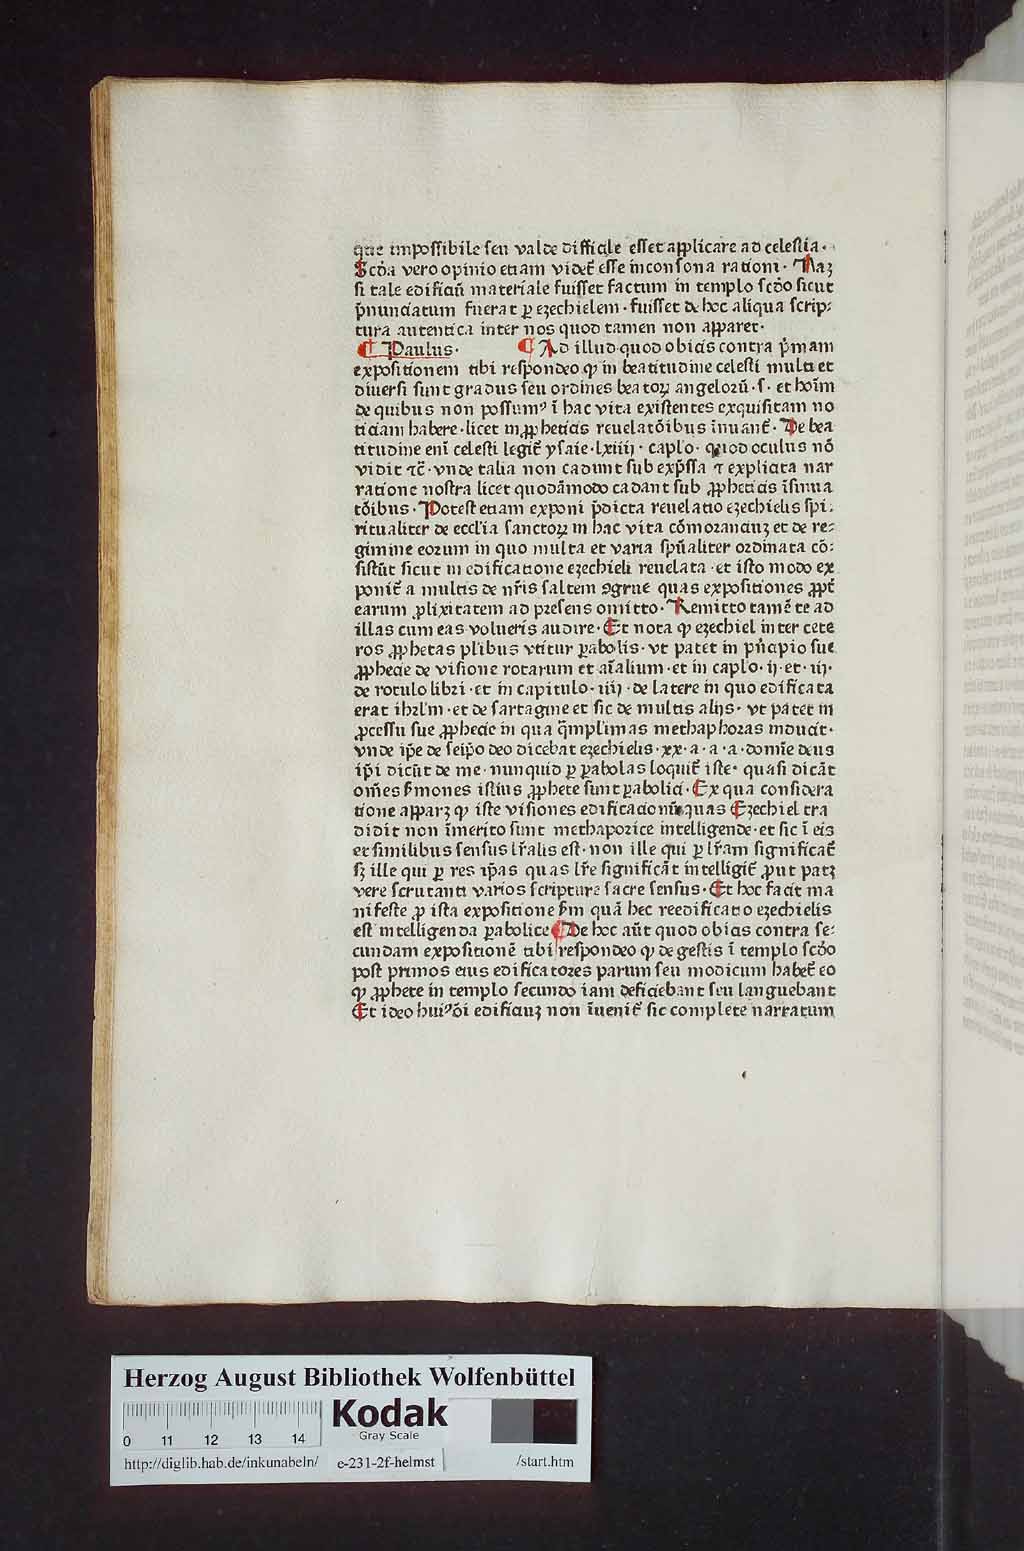 que impossibile seu valde difficile esset applicare ad celestia·
Scd̄a vero opinio etiam videt᷑ esse inconsona rationi· Naꝫ
si tale edificiū materiale fuisset factum in templo scd̄o sicut
p̄nunciatum fuerat ꝑ ezechielem· fuisset de hoc aliqua scrip⸗
tura autentica inter nos quod tamen non apparet·
¶ Paulus· ¶ Ad illud quod obicis contra p̓mam
expositionem tibi respondeo ꝙ in beatitudine celesti multi et
diuersi sunt gradus seu ordines beatoꝝ angeloꝝ·s· et hoīm
de quibus non possumꝰ ī hac vita existentes exquisitam no
ticiam habere·licet in ꝓpheticis reuelatōibus īnuant᷑· De bea
titudine enī celesti legit᷑ ysaie·lxiiij· caplo· quod oculus nō
vidit ⁊c̄· vnde talia non cadunt sub exp̄ssa ⁊ explicita nar
ratione nostra licet quodāmodo cadant sub ꝓpheticis īsinua
tōibus· Potest etiam exponi p̄dicta reuelatio ezechielis spi⸗
ritualiter de eccl'ia sanctoꝝ in hac vita cōmorancium et de re⸗
gimine eorum in quo multa et varia sp̄ualiter ordinata cō⸗
sistūt sicut in edificatione ezechieli reuelata· et isto modo ex
ponit᷑ a multis de nr̄is saltem ꝯgrue quas expositiones ꝓpt̄
earum ꝓlixitatem ad presens omitto· Remitto tamē te ad
illas cum eas volueris audire· Et nota ꝙ ezechiel inter cete
ros ꝓphetas pl'ibus vtitur ꝑabolis· vt patet in pn̓cipio sue
ꝓphecie de visione rotarum et aīalium·et in caplo·ij·et·iij·
de rotulo libri·et in capitulo·iiij·de latere in quo edificata
erat ihrl'm·et de sartagine et sic de multis alijs· vt patet in
ꝓcessu sue ꝓphecie in qua q̄mpl'imas methaphoras inducit·
vnde ip̄e de seip̄o deo dicebat ezechielis·xx·a·a·a·domīe deus
ip̄i dicūt de me·nunquid ꝑ ꝑabolas loquit᷑ iste· quasi dicāt
om̄es ẜmones istius ꝓphete sunt ꝑabolici· Ex qua considera
tione apparꝫ ꝙ iste visiones edificacionū quas Ezechiel tra
didit non īmerito sunt methaporice intelligende·et sic ī eis
et similibus sensus lr̄alis est·non ille qui ꝑ lr̄am significat᷑
sꝫ ille qui ꝑ res ip̄as quas lr̄e significāt intelligit᷑ ꝓut patꝫ
vere scrutanti varios scripture sacre sensus· Et hoc facit ma
nifeste ꝓ ista expositione ẜm quā hec reedificatio ezechielis
est intelligenda ꝑabolice ¶ De hoc aūt quod obicis contra se⸗
cundam expositionē tibi respondeo ꝙ de gestis ī templo scd̄o
post primos eius edificatores parum seu modicum habet᷑ eo
ꝙ ꝓphete in templo secundo iam deficiebant seu languebant
Et ideo huiꝰōi edificiuꝫ non īuenit᷑ sic complete narratum
Herzog August Bibliothek Wolfenbüttel
Kodak
Gray Scale
0 11 12 13 14
http://diglib.hab.de/inkunabeln/ e-231-2f-helmst /start.htm